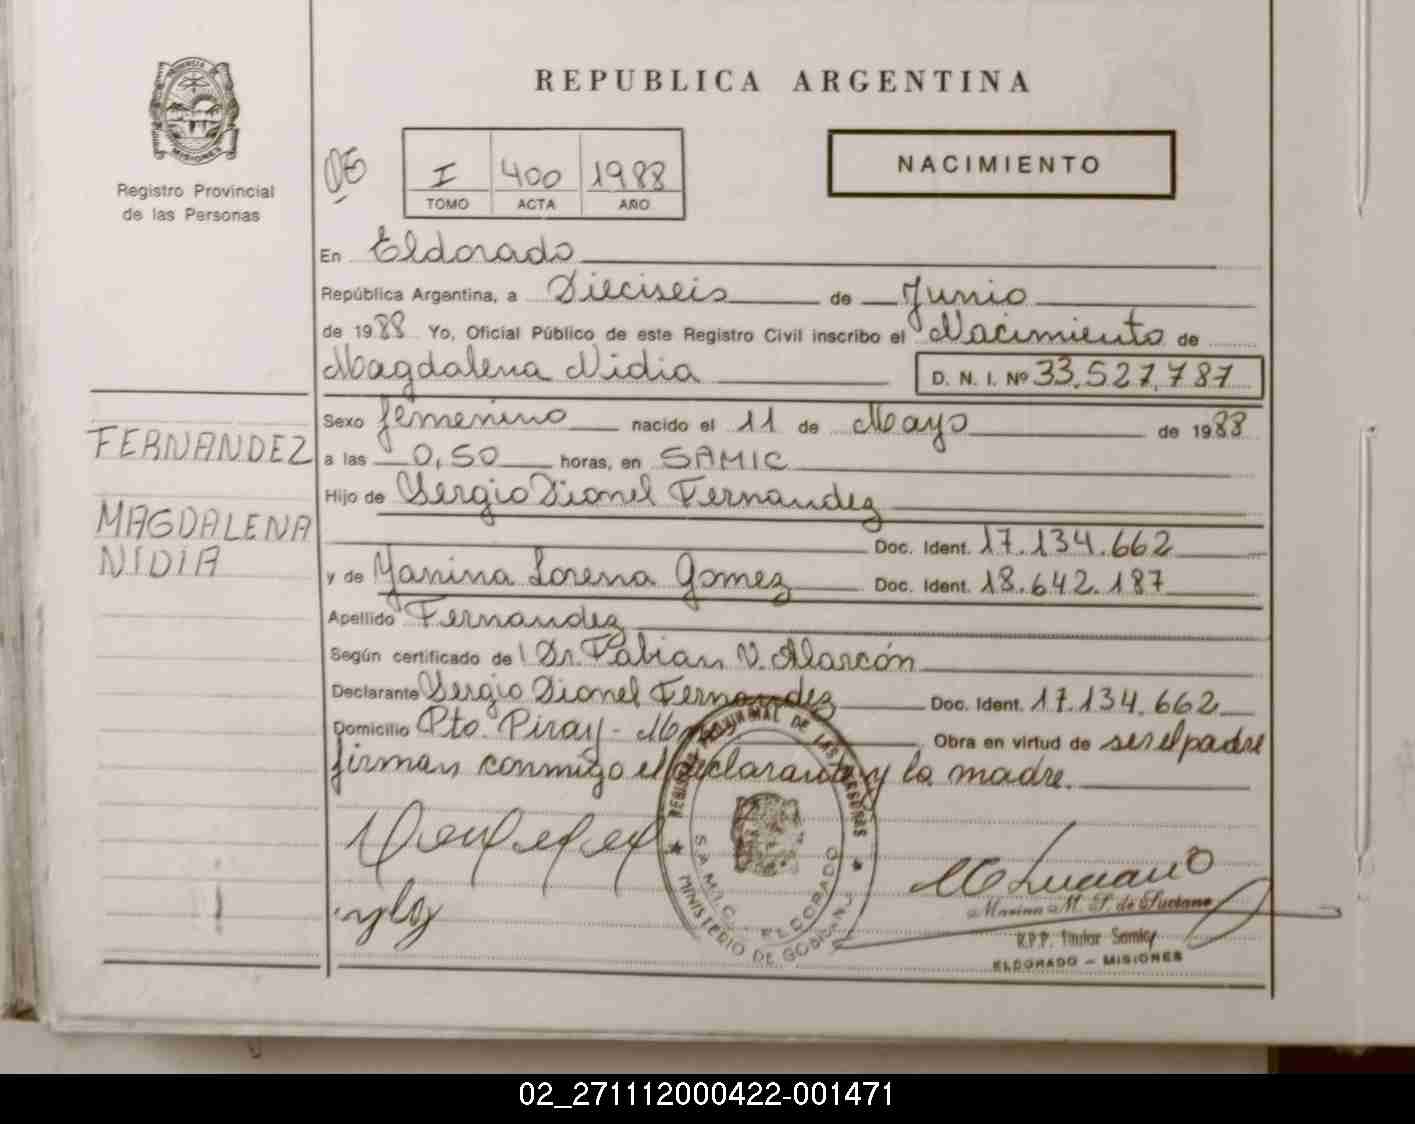 REPUBLICA ARGENTINA
PROVINCIA DE MISIONES
Registro Provincial
de las Personas
I 400 1988
TOMO ACTA AÑO
NACIMIENTO
En Eldorado
República Argentina, a Dieciseis de Junio
de 1988 Yo, Oficial Público de este Registro Civil inscribo el Nacimiento de
Magdalena Nidia D. N. I. Nº 33.527.787
FERNANDEZ
MAGDALENA
NIDIA
Sexo femenino nacido el 11 de Mayo de 1988
a las 0,50 horas, en SAMIC
Hijo de Sergio Dionel Fernandez
Doc. Ident. 17.134.662
y de Yanina Lorena Gomez Doc. Ident. 18.642.187
Apellido Fernandez
Según certificado de Dr. Fabian V. Alarcón
Declarante Sergio Dionel Fernandez Doc. Ident. 17.134.662
Domicilio Pto. Piray - Obra en virtud de ser el padre
firman conmigo el declarante y la madre.
REGISTRO PROVINCIAL DE LAS PERSONAS
S.A.M.I.C. ELDORADO
MINISTERIO DE GOBIERNO
M Luciano
Marina M. de Luciano
R.P.P. Titular Samic
ELDORADO - MISIONES
02_271112000422-001471